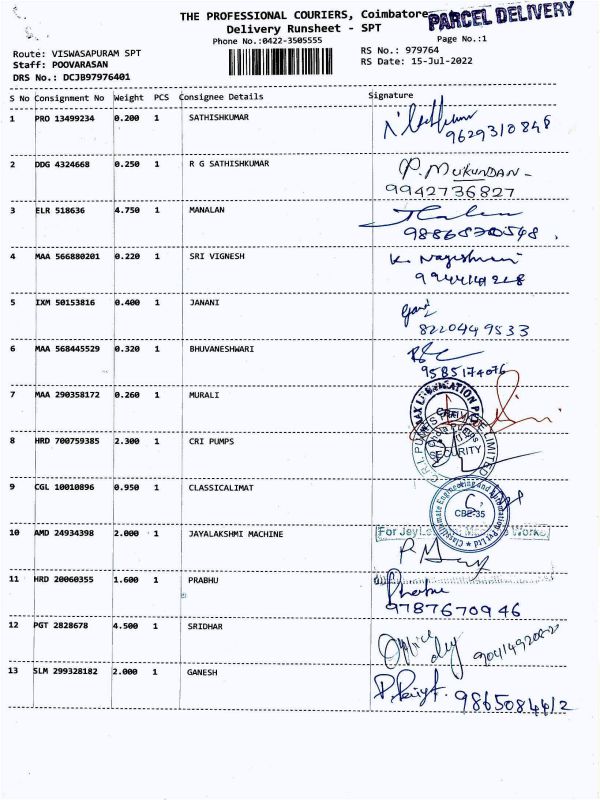 THE PROFESSIONAL COURIERS, Coimbatore
PARCEL DELIVERY
Delivery Runsheet - SPT
Phone No.:0422-3505555
Page No.:1
Route: VISWASAPURAM SPT
RS No.: 979764
Staff: POOVARASAN
RS Date: 15-Jul-2022
DRS No.: DCJB97976401
S No Consignment No Weight PCS Consignee Details Signature
1 PRO 13499234 0.200 1 SATHISHKUMAR
9629310848
2 DDG 4324668 0.250 1 R G SATHISHKUMAR
P. MUKUNDAN -
9942736827
3 ELR 518636 4.750 1 MANALAN
4 MAA 566880201 0.220 1 SRI VIGNESH
K. Nageshwari
5 IXM 50153816 0.400 1 JANANI
8220449533
6 MAA 568445529 0.320 1 BHUVANESHWARI
9585174076
7 MAA 290358172 0.260 1 MURALI
8 HRD 700759385 2.300 1 CRI PUMPS
C.R.I. PUMPS PRIVATE LIMITED
SECURITY
9 CGL 10010896 0.950 1 CLASSICALIMAT
CBE-35
10 AMD 24934398 2.000 1 JAYALAKSHMI MACHINE
11 HRD 20060355 1.600 1 PRABHU
Prabhu
9787670946
12 PGT 2828678 4.500 1 SRIDHAR
Office
13 SLM 299328182 2.000 1 GANESH
9865084412